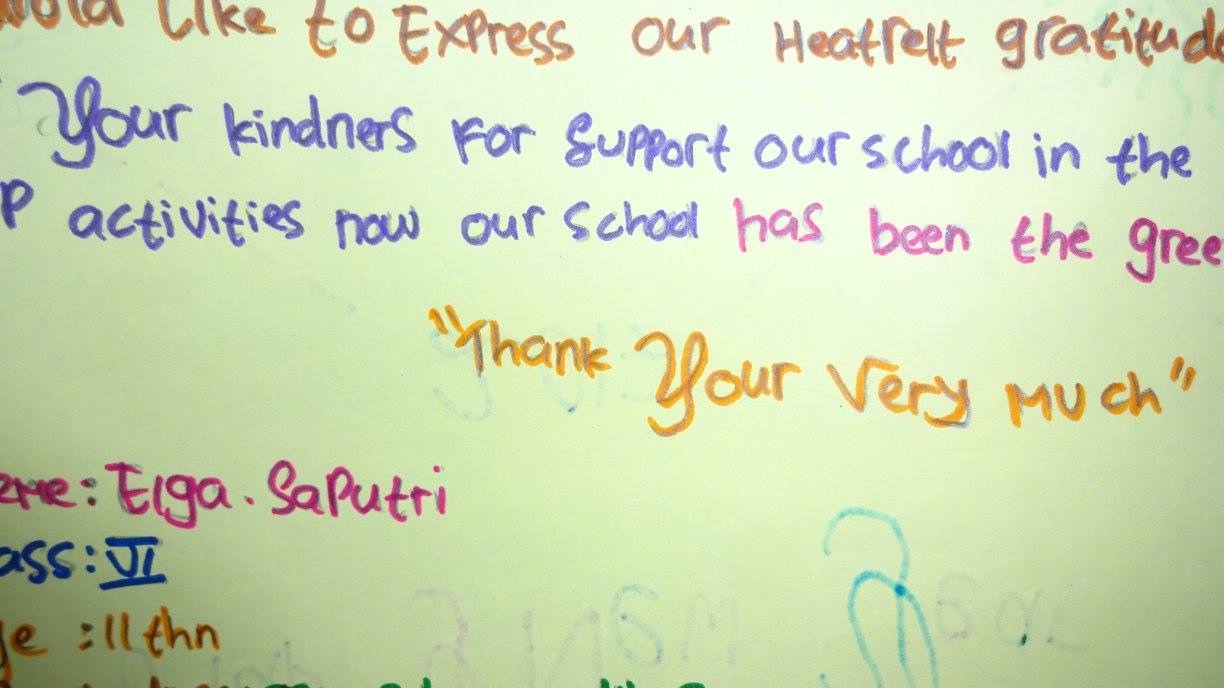 Like to Express our Heatfelt gratitude
Your kindners For Support our school in the
P activities now our School has been the gree
"Thank Your Very Much"
eme: Elga. Saputri
ass: VI
ge : 11 thn